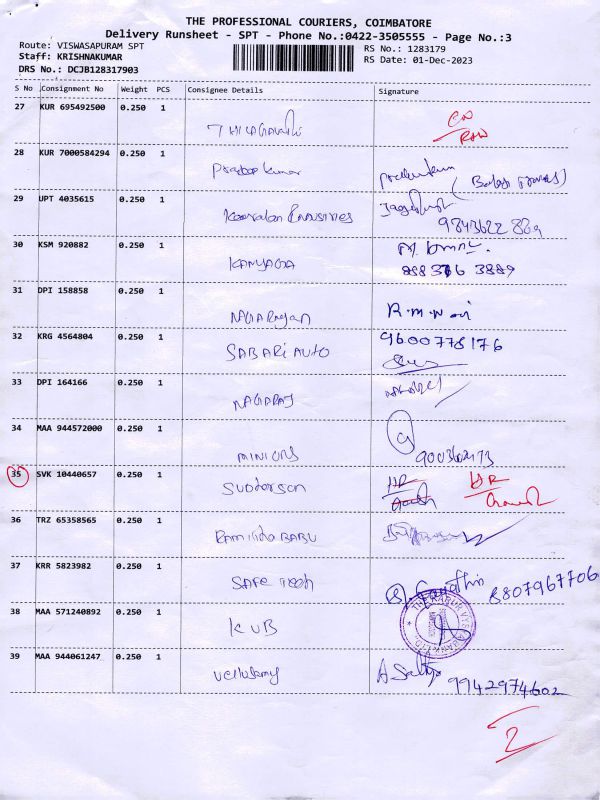 THE PROFESSIONAL COURIERS, COIMBATORE
Delivery Runsheet - SPT - Phone No.:0422-3505555 - Page No.:3
Route: VISWASAPURAM SPT
RS No.: 1283179
Staff: KRISHNAKUMAR
RS Date: 01-Dec-2023
DRS No.: DCJB128317903
S No Consignment No Weight PCS Consignee Details Signature
27 KUR 695492500 0.250 1
28 KUR 7000584294 0.250 1
Pradeep kumar
29 UPT 4035615 0.250 1
Industries
30 KSM 920882 0.250 1
31 DPI 158858 0.250 1
Nagarajan
32 KRG 4564804 0.250 1
SABARI AUTO 9600778176
33 DPI 164166 0.250 1
NAGARAJ
34 MAA 944572000 0.250 1
MINIORS
35 SVK 10440657 0.250 1
36 TRZ 65358565 0.250 1
BABU
37 KRR 5823982 0.250 1
Safe Tech 8807967706
38 MAA 571240892 0.250 1
KVB
39 MAA 944061247 0.250 1
Vellusamy 9942974602
2